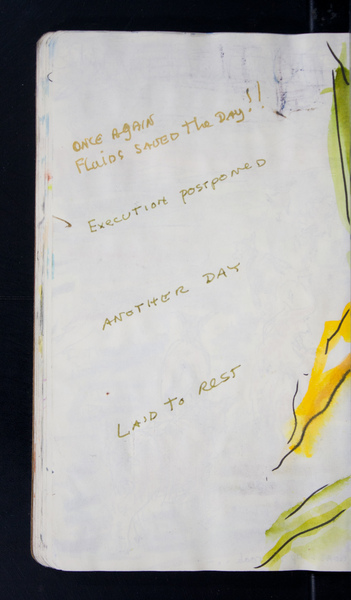 ONCE AGAIN
Fluids SAVED the DAY!!
Execution postponed
ANOTHER DAY
LAID to ReST